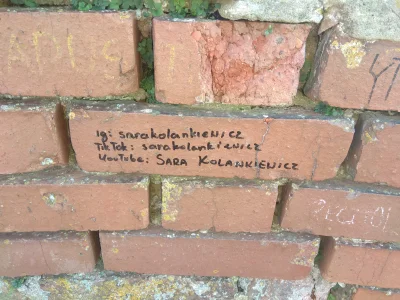 ig: sarakolankiewicz
TikTok: sarakolankiewicz
YouTube: SARA KOLANKIEWICZ